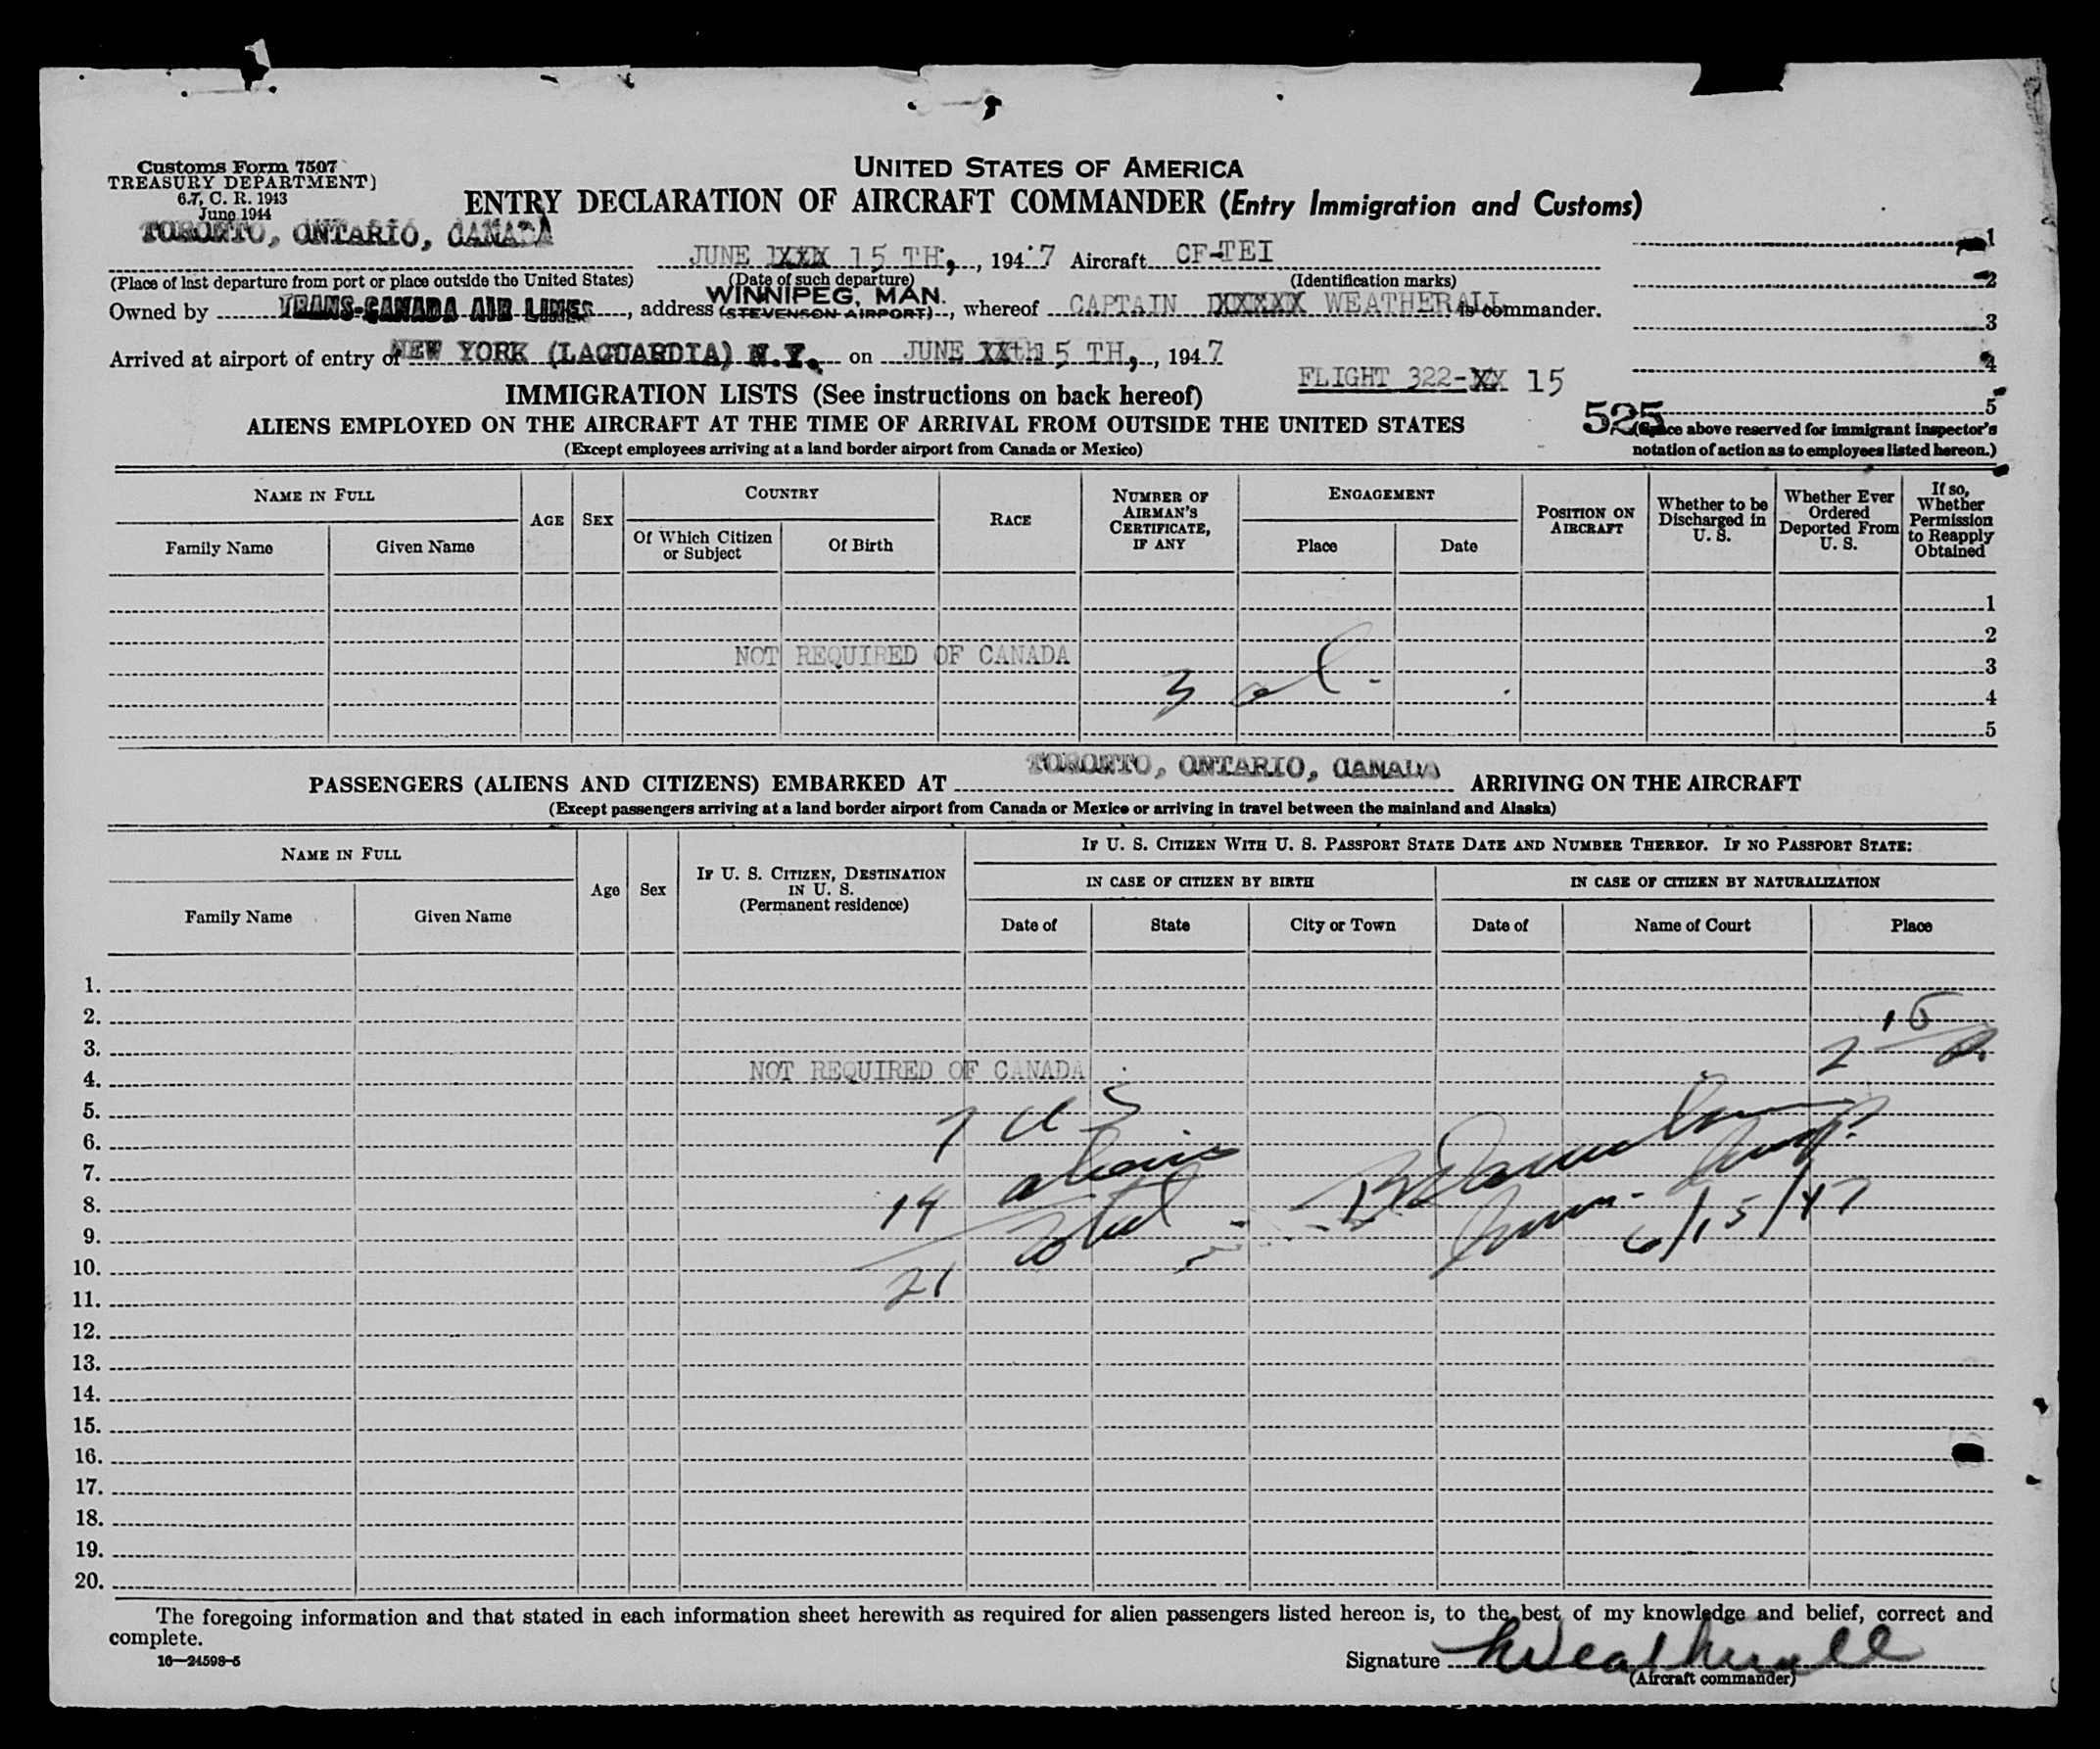 Customs Form 7507
TREASURY DEPARTMENT)
6.7, C. R. 1943
June 1944
UNITED STATES OF AMERICA
ENTRY DECLARATION OF AIRCRAFT COMMANDER (Entry Immigration and Customs)
TORONTO, ONTARIO, CANADA
JUNE 15 TH, , 194 7 Aircraft CF-TEI
(Place of last departure from port or place outside the United States) (Date of such departure) (Identification marks)
WINNIPEG, MAN.
Owned by TRANS-CANADA AIR LINES, address (STEVENSON AIRPORT), whereof CAPTAIN XXXXX WEATHERALL is commander.
Arrived at airport of entry of NEW YORK (LAGUARDIA) N.Y. on JUNE 15 TH, , 194 7
FLIGHT 322-XX 15
1
2
3
4
5
525
(Space above reserved for immigrant inspector's
notation of action as to employees listed hereon.)
IMMIGRATION LISTS (See instructions on back hereof)
ALIENS EMPLOYED ON THE AIRCRAFT AT THE TIME OF ARRIVAL FROM OUTSIDE THE UNITED STATES
(Except employees arriving at a land border airport from Canada or Mexico)
NAME IN FULL
Family Name
Given Name
AGE
SEX
COUNTRY
Of Which Citizen
or Subject
Of Birth
RACE
NUMBER OF
AIRMAN'S
CERTIFICATE,
IF ANY
ENGAGEMENT
Place
Date
POSITION ON
AIRCRAFT
Whether to be
Discharged in
U. S.
Whether Ever
Ordered
Deported From
U. S.
If so,
Whether
Permission
to Reapply
Obtained
1
2
NOT REQUIRED OF CANADA
3
3
4
5
TORONTO, ONTARIO, CANADA
PASSENGERS (ALIENS AND CITIZENS) EMBARKED AT ARRIVING ON THE AIRCRAFT
(Except passengers arriving at a land border airport from Canada or Mexico or arriving in travel between the mainland and Alaska)
NAME IN FULL
Family Name
Given Name
Age
Sex
IF U. S. CITIZEN, DESTINATION
IN U. S.
(Permanent residence)
IF U. S. CITIZEN WITH U. S. PASSPORT STATE DATE AND NUMBER THEREOF. IF NO PASSPORT STATE:
IN CASE OF CITIZEN BY BIRTH
IN CASE OF CITIZEN BY NATURALIZATION
Date of
State
City or Town
Date of
Name of Court
Place
1.
2.
3.
NOT REQUIRED OF CANADA
4.
5.
7 US
6.
7.
14 aliens
8.
6/15/47
9.
21 total
10.
11.
12.
13.
14.
15.
16.
17.
18.
19.
20.
The foregoing information and that stated in each information sheet herewith as required for alien passengers listed hereon is, to the best of my knowledge and belief, correct and
complete.
16—24598-5
Signature Weatherall
(Aircraft commander)